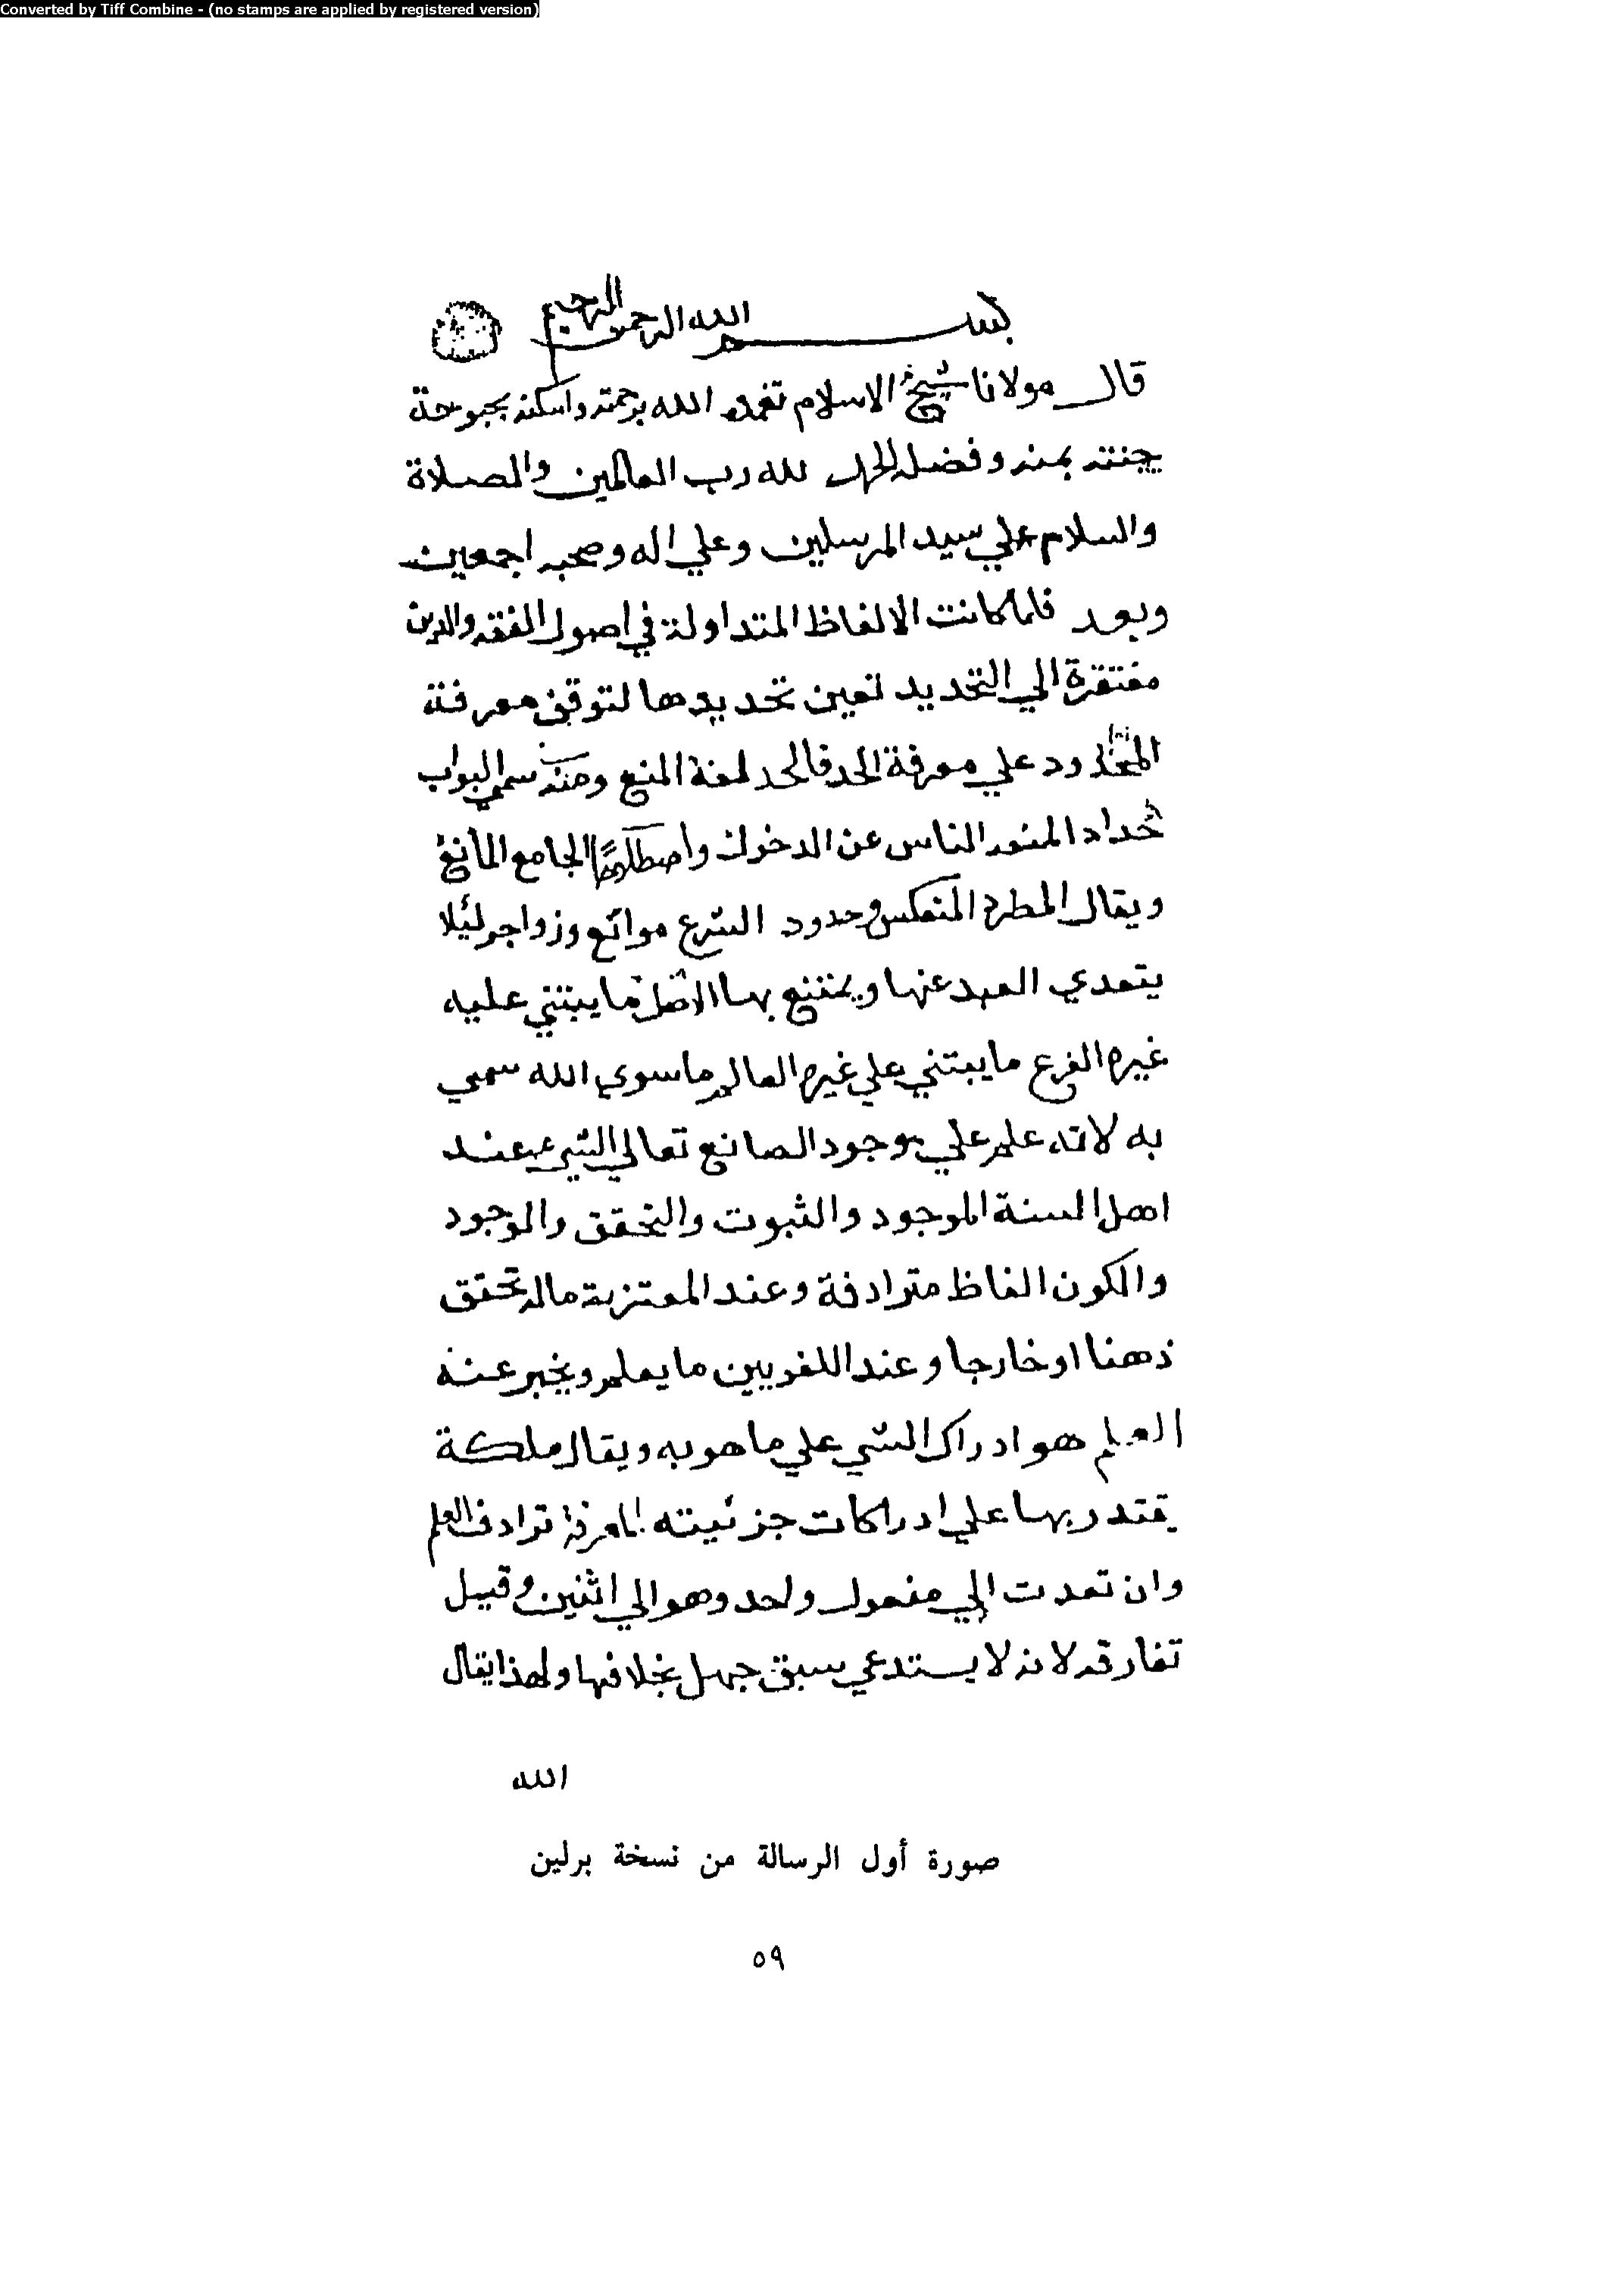 Converted by Tiff Combine - (no stamps are applied by registered version)
بسم الله الرحمن الرحيم
قال مولانا شيخ الاسلام تغمده الله برحمته واسكنه بحبوحة
جنته بمنه وفضله الحمد لله رب العالمين والصلاة
والسلام علي سيد المرسلين وعلي اله وصحبه اجمعين
وبعد فلما كانت الالفاظ المتداولة في اصول الفقه والدين
مفتقرة الي التحديد تعين تحديدها لتوقف معرفة
المحدود علي معرفة الحد فالحد لغة المنع ومنه سمي البواب
حدادا لمنعه الناس عن الدخول واصطلاحا الجامع المانع
ويقال المطرد المنعكس وحدود الشرع موانع وزواجر لئلا
يتعدي العبد عنها ويمتنع بها الاصل ما يبتني عليه
غيره الفرع ما يبتني علي غيره العالم ما سوي الله سمي
به لانه علم علي وجود الصانع تعالي الشي عند
اهل السنة الموجود والثبوت والتحقق والوجود
والكون الفاظ مترادفة وعند المعتزلة ماله تحقق
ذهنا او خارجا وعند اللغويين ما يعلم ويخبر عنه
العلم هو ادراك الشي علي ما هو به ويقال ملكة
يقتدر بها علي ادراكات جزئيته المعرفة ترادف العلم
وان تعدت الي مفعول واحد وهو الي اثنين وقيل
تفارقه لانه لا يستدعي سبق جهل بخلافها ولهذا يقال
الله
صورة أول الرسالة من نسخة برلين
٥٩